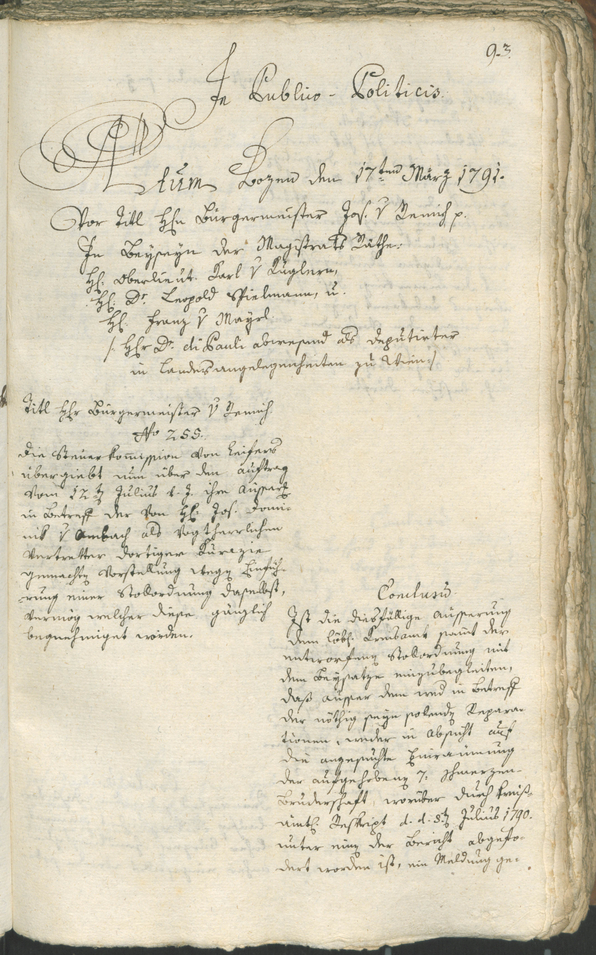 93.
In Publico-Politicis.
Actum Bozen den 17ten März 1791.
Vor Titl Hhn Bürgermeister Jos. v Remich p.
In Beyseyn der Magistrats Räthe:
Hh. Oberlieut. Karl v Kuglern,
Hh. Dr. Leopold Spielmann, u.
Hh. Franz v Mayrl.
/: Hhr Dr. di Pauli abwesend als Deputirter
in Landesangelegenheiten zu Wien :/
Titl Hhr Bürgermeister v Remich.
No 255.
Die Steuerkommission von Leifers
übergiebt nun über den Auftrag
vom 12ten Julius v. J. ihre Aussert
in Betreff der von Hh. Jos. Domi-
nik v Ambach als Vogtherrlichen
Vertretter dortiger Kurazie
gemachten Vorstellung wegen Einfüh-
rung einer Stokordnung daselbst,
vermög welcher diese gänzlich
begnehmiget worden.
Conclusum
Ist die diesfällige Aeusserung
dem löbl. Kreisamt sammt der
entworfenen Stokordnung mit
dem Beysatze einzubegleiten,
daß ausser dem und in Betreff
der nöthig seyn sollenden Repara-
tionen, weder in Absicht auf
die angesuchte Einräumung
der aufgehobenen 7. Schmerzen-
Bruderschaft, worüber durch Kreis-
ämtl. Reskript d. d. 5ten Julius 1790.
unter einem der Bericht abgefo-
dert worden ist, ein Meldung ge-